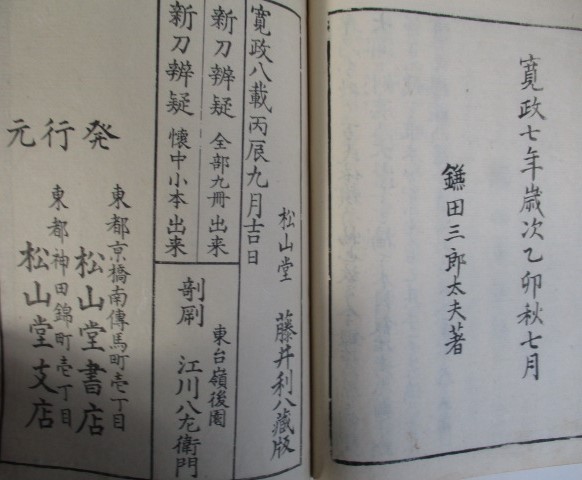 寛政七年歳次乙卯秋七月
鎌田三郎太夫著
松山堂 藤井利八蔵版
寛政八載丙辰九月吉日
新刀辨疑 全部九冊 出来
新刀辨疑 懐中小本 出来
東台嶺後園
剞劂 江川八左衛門
東都京橋南傳馬町壱丁目
松山堂書店
東都神田錦町壱丁目
松山堂支店
発行元